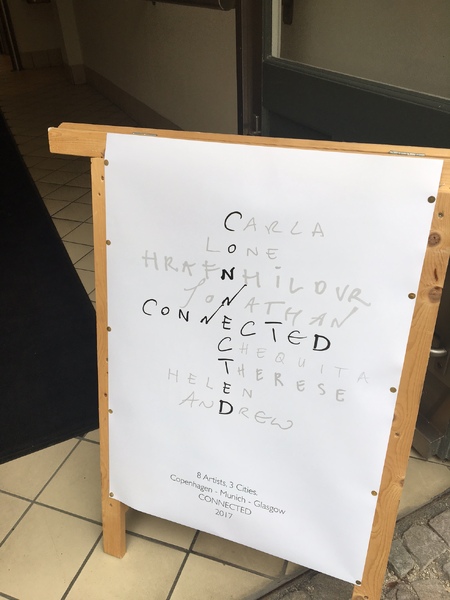 CARLA
LONE
HRAFNHILDUR
JONATHAN
CONNECTED
CHEQUITA
THERESE
HELEN
ANDREW
8 Artists, 3 Cities.
Copenhagen - Munich - Glasgow
CONNECTED
2017